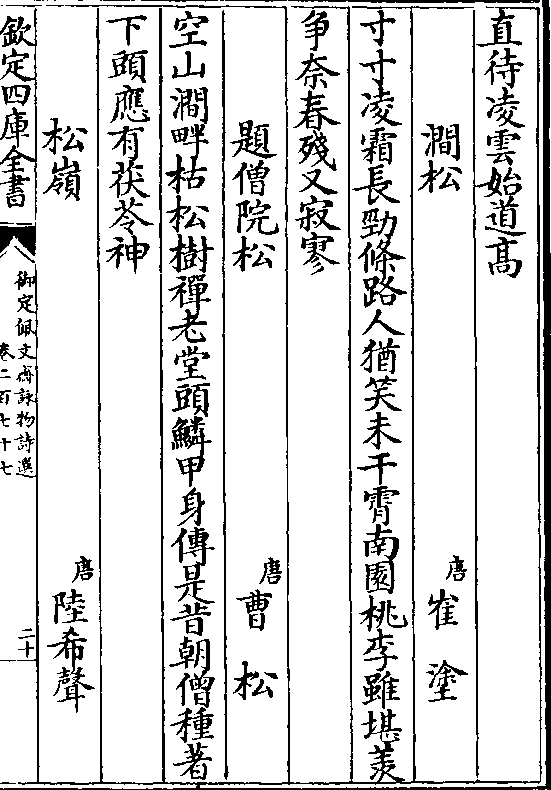 直待凌雲始道髙
澗松
唐
崔塗
寸寸凌霜長勁條路人猶笑未干霄南園桃李雖堪羡
争奈春殘又寂寥
題僧院松
唐
曹松
空山澗畔枯松樹禪老堂頭鱗甲身傳是昔朝僧種著
下頭應有茯苓神
松嶺
唐
陸希聲
欽定四庫全書
御定佩文齋詠物詩選
卷二百七十七
二十